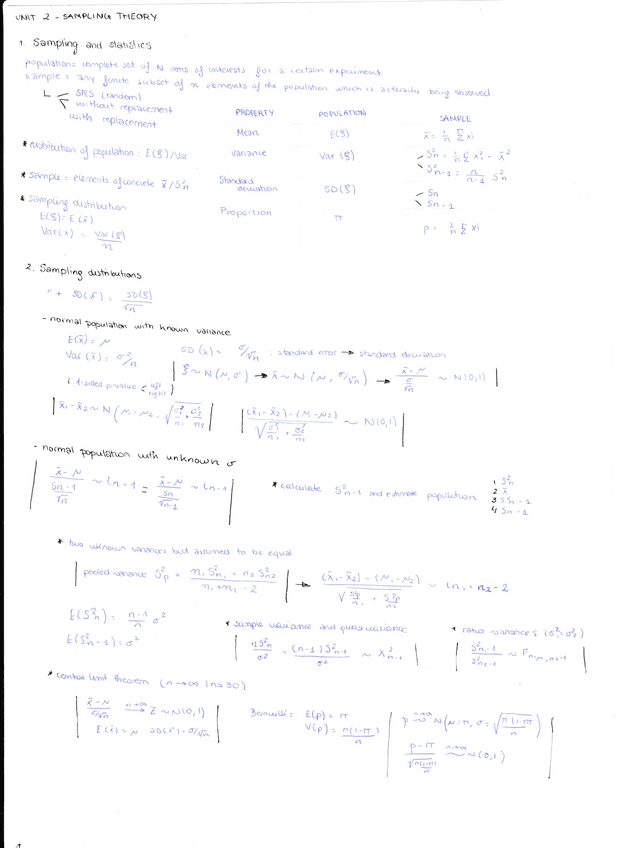 UNIT 2 - SAMPLING THEORY
1. Sampling and statistics
population = complete set of N items of interests for a certain experiment
sample = any finite subset of n elements of the population which is actually being observed
SRS (random)
without replacement
with replacement
PROPERTY POPULATION SAMPLE
Mean E(ξ) x̄ = 1/n Σ xi
* distribution of population: E(ξ)/Var Variance Var(ξ) S²n = 1/n Σ xi² - x̄²
S²n-1 = n/n-1 S²n
* sample = elements of concrete x̄/S²n Standard deviation SD(ξ) Sn
Sn-1
* sampling distribution Proportion π p = 1/n Σ xi
E(ξ) = E(x̄)
Var(x̄) = Var(ξ)/n
2. Sampling distributions
SD(x̄) = SD(ξ)/√n
- normal population with known variance
E(x̄) = μ
Var(x̄) = σ²/n SD(x̄) = σ/√n : standard error → standard deviation
ξ ~ N(μ, σ) → x̄ ~ N(μ, σ/√n) → x̄ - μ / σ/√n ~ N(0,1)
(1-sided p-value < left
right)
x̄1 - x̄2 ~ N(μ1 - μ2, √σ1²/n1 + σ2²/n2) (x̄1 - x̄2) - (μ1 - μ2) / √σ1²/n1 + σ2²/n2 ~ N(0,1)
- normal population with unknown σ
x̄ - μ / Sn-1/√n ~ tn-1 = x̄ - μ / Sn/√n-1 ~ tn-1
* calculate S²n-1 and estimate population
1 S²n
2 x̄
3 S²n-1
4 Sn-1
* two uknown variances but assumed to be equal
pooled variance S²p = n1 S²n1 + n2 S²n2 / n1 + n2 - 2 → (x̄1 - x̄2) - (μ1 - μ2) / √S²p/n1 + S²p/n2 ~ tn1 + n2 - 2
E(S²n) = n-1/n σ²
E(S²n-1) = σ²
* sample variance and quasivariance
nS²n/σ² = (n-1)S²n-1/σ² ~ X²n-1
* ratio variances (σ1² = σ2²)
S²n1-1/S²n2-1 ~ Fn1-1, n2-1
* central limit theorem (n→∞ | n>30)
x̄ - μ / σ/√n n→∞ Z ~ N(0,1)
E(x̄) = μ SD(x̄) = σ/√n
Bernoulli: E(p) = π
V(p) = π(1-π)/n
p n→∞ ~ N(μ = π, σ = √π(1-π)/n)
p - π / √π(1-π)/n n→∞ ~ N(0,1)